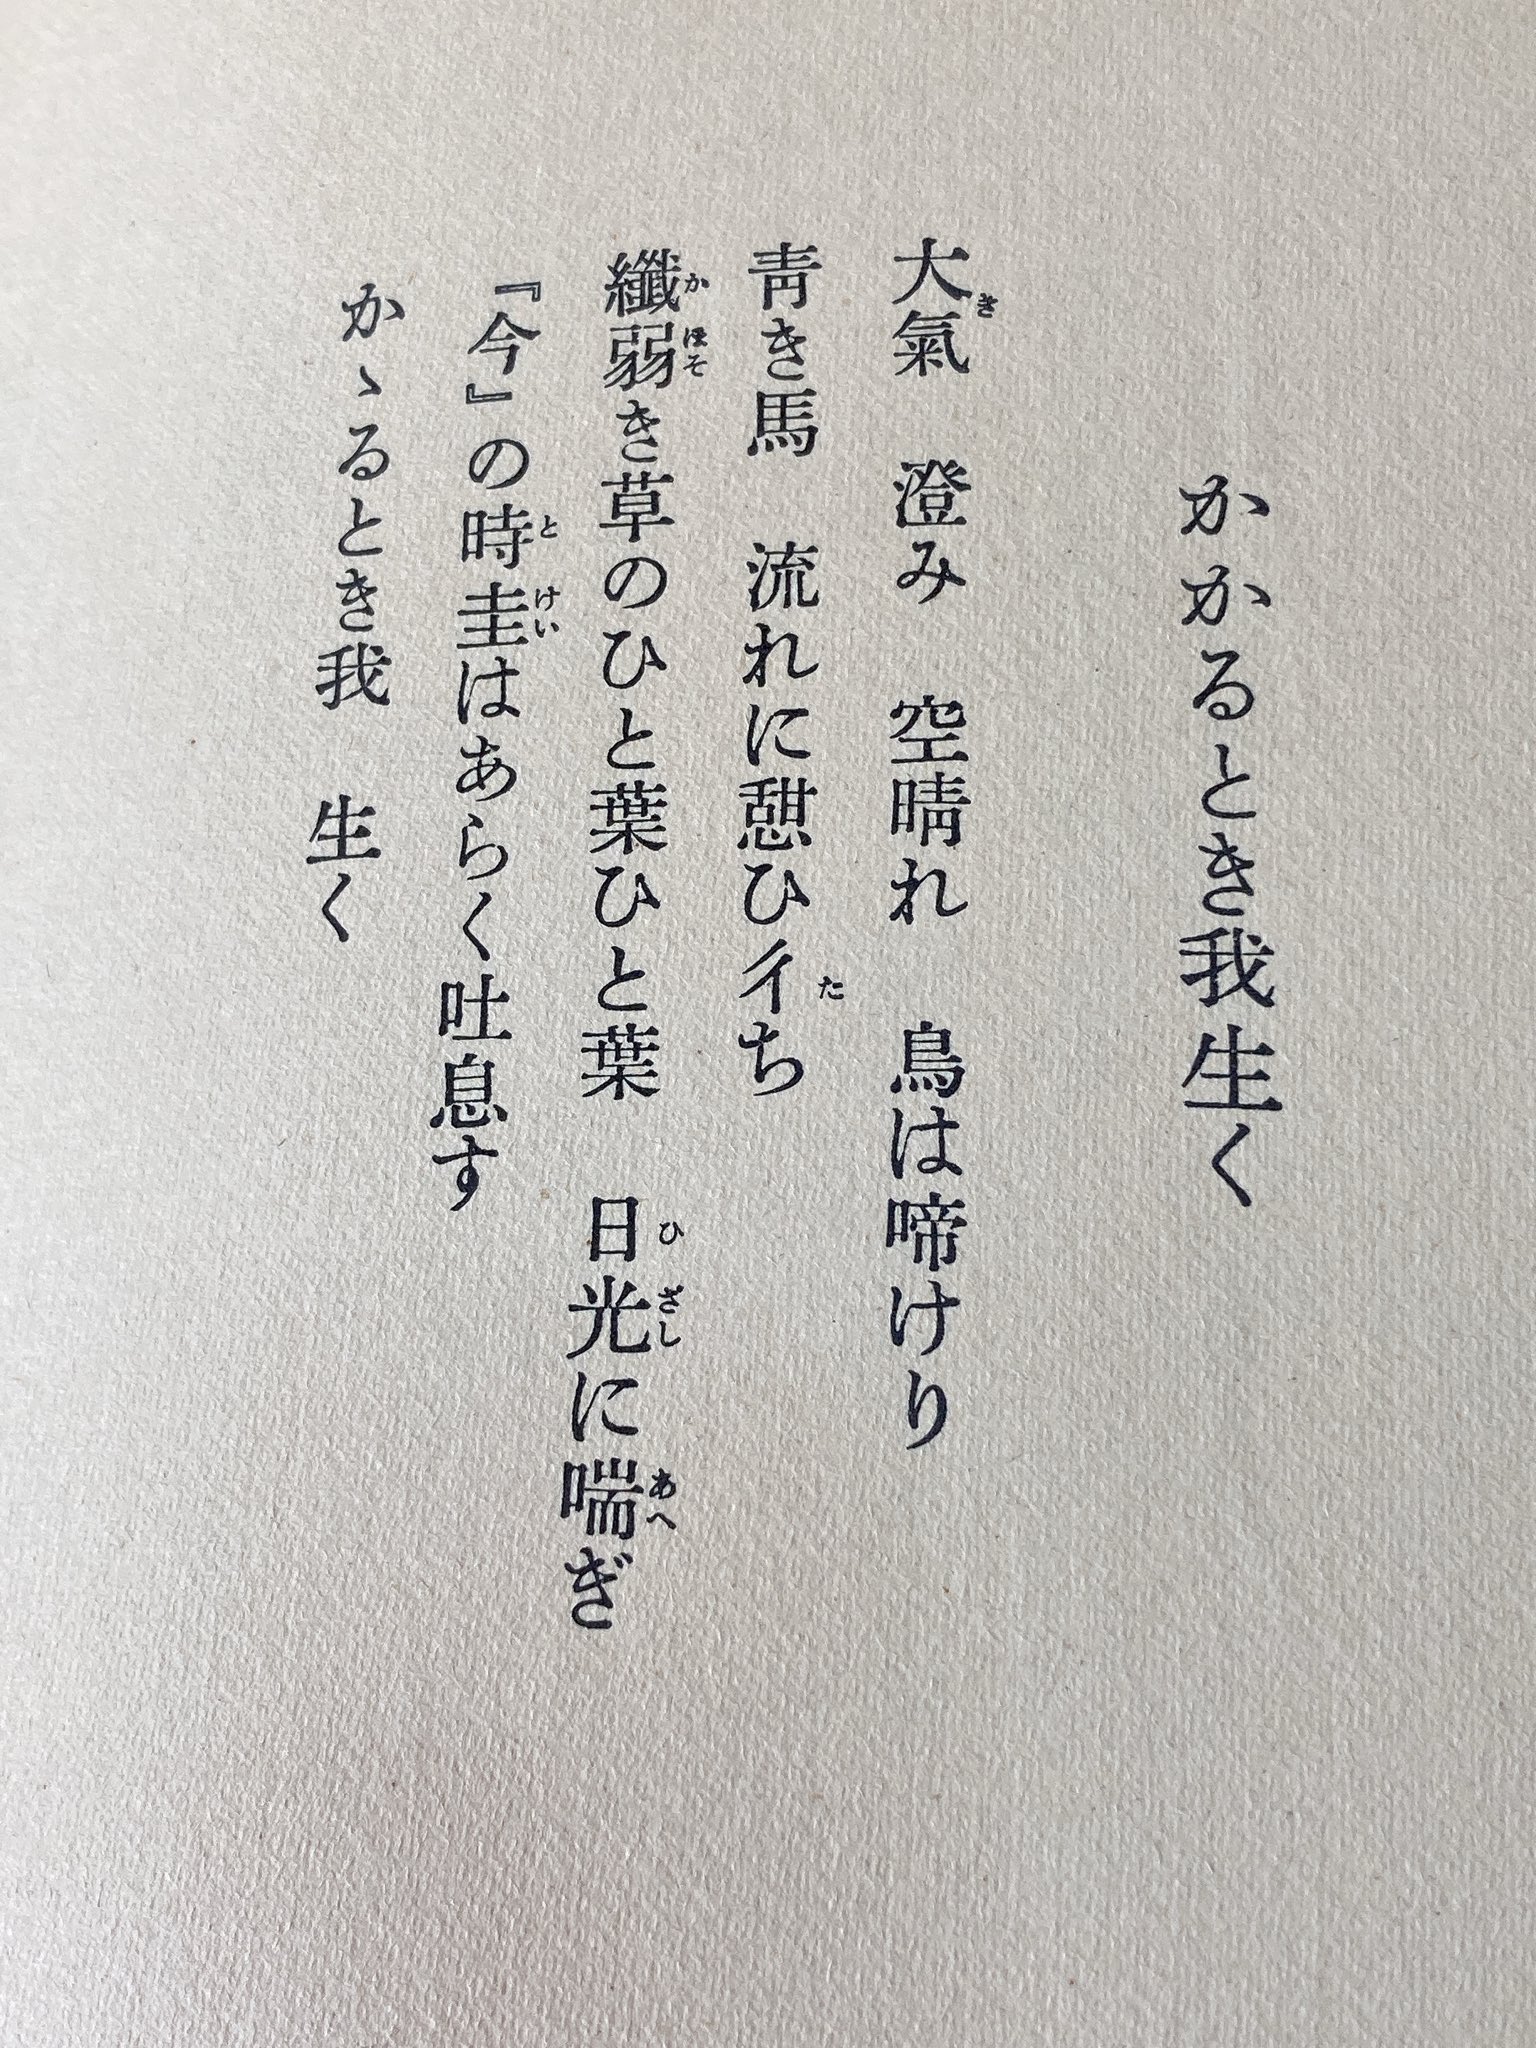 かかるとき我生く
大氣　澄み　空晴れ　鳥は啼けり
青き馬　流れに憩ひ彳ち
纖弱き草のひと葉ひと葉　日光に喘ぎ
『今』の時圭はあらく吐息す
かゝるとき我　生く